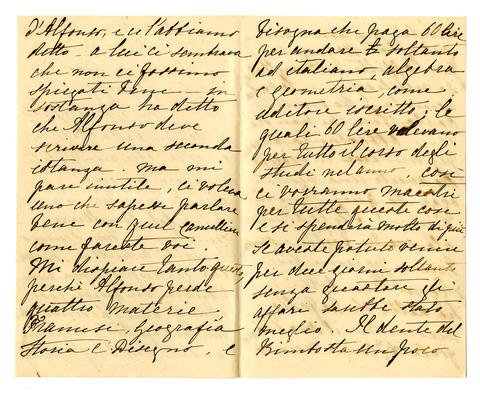 d'Alfonso, e ce l'abbiamo
detto a lui ci sembrava
che non ci fossimo
spiegati bene – in
sostanza ha detto
che Alfonso deve
scrivere una seconda
istanza. ma mi
pare inutile, ci voleva
uno che sapesse parlare
bene con quel
come fareste voi.
Mi dispiace tanto questo,
perché Alfonso perde
quattro materie
Francese, Geografia
Storia e Disegno, e
bisogna che paga 60 lire
per andare soltanto
ad italiano, algebra
e geometria, come
uditore iscritto; le
quali 60 lire valevano
per tutto il corso degli
studi nel anno. così
ci vorranno maestri
per tutte queste cose
e si spenderà molto di più.
Se aveste potuto venire
per due giorni soltanto
senza guastare gli
affari sarebbe stato
meglio. Il dente del
Bimbo sta un poco